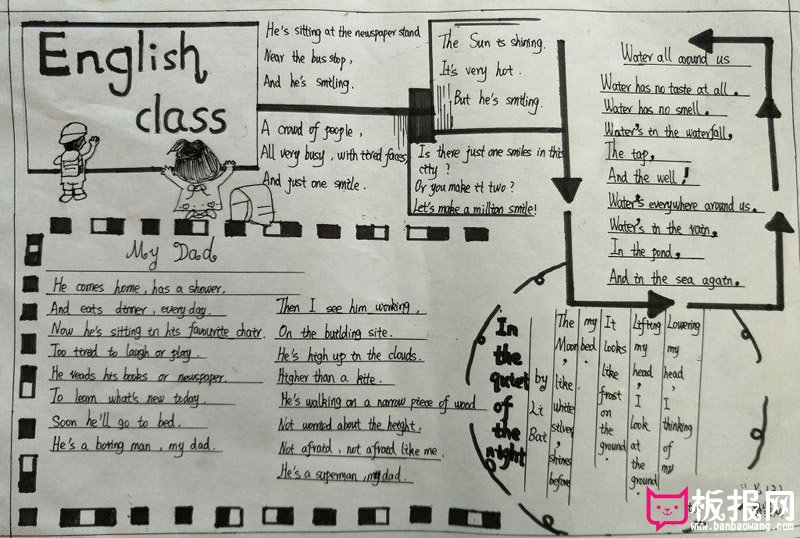 English
class
He's sitting at the newspaper stand
Near the bus stop,
And he's smiling.
A crowd of people,
All very busy, with tired faces,
And just one smile.
The Sun is shining.
It's very hot.
But he's smiling.
Is there just one smiles in this
city?
Or you make it two?
Let's make a million smile!
Water all around us
Water has no taste at all.
Water has no smell.
Water's in the waterfall,
The tap,
And the well!
Water's everywhere around us.
Water's in the rain,
In the pond,
And in the sea again.
My Dad
He comes home, has a shower,
And eats dinner, every day.
Now he's sitting in his favourite chair.
Too tired to laugh or play.
He reads his books or newspaper.
To learn what's new today.
Soon he'll go to bed.
He's a boring man, my dad.
Then I see him working,
On the building site.
He's high up in the clouds.
Higher than a kite.
He's walking on a narrow piece of wood
Not worried about the height,
Not afraid, not afraid like me.
He's a superman, my dad.
In the quiet of the night
by Li Bai
The Moon, like white silver, shines before
my bed.
It looks like frost on the ground.
Lifting my head, I look at the ground.
Lowering my head, I thinking of my
板报网
www.banbaowang.com